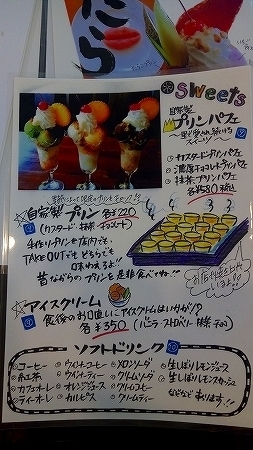 Sweets
自家製
プリンパフェ
カスタードプリンパフェ
濃厚チョコレートプリンパフェ
抹茶プリンパフェ
各¥580 税込
自家製プリン 各¥220
(カスタード・抹茶・チョコレート)
手作りプリンを店内でも
TAKE OUTでもどちらでも
味わえるよ!!
昔ながらのプリンを是非食べてね!!
アイスクリーム
食後のお口直しにアイスクリームはいかが?
各¥350 (バニラ・ストロベリー・抹茶・チョコ)
ソフトドリンク
コーヒー
紅茶
カフェオレ
ティーオレ
ウインナーコーヒー
ウインナーティー
オレンジジュース
カルピス
メロンソーダ
クリームソーダ
クリームコーヒー
クリームティー
生しぼりレモンジュース
生しぼりレモンスカッシュ
などなどあります!!